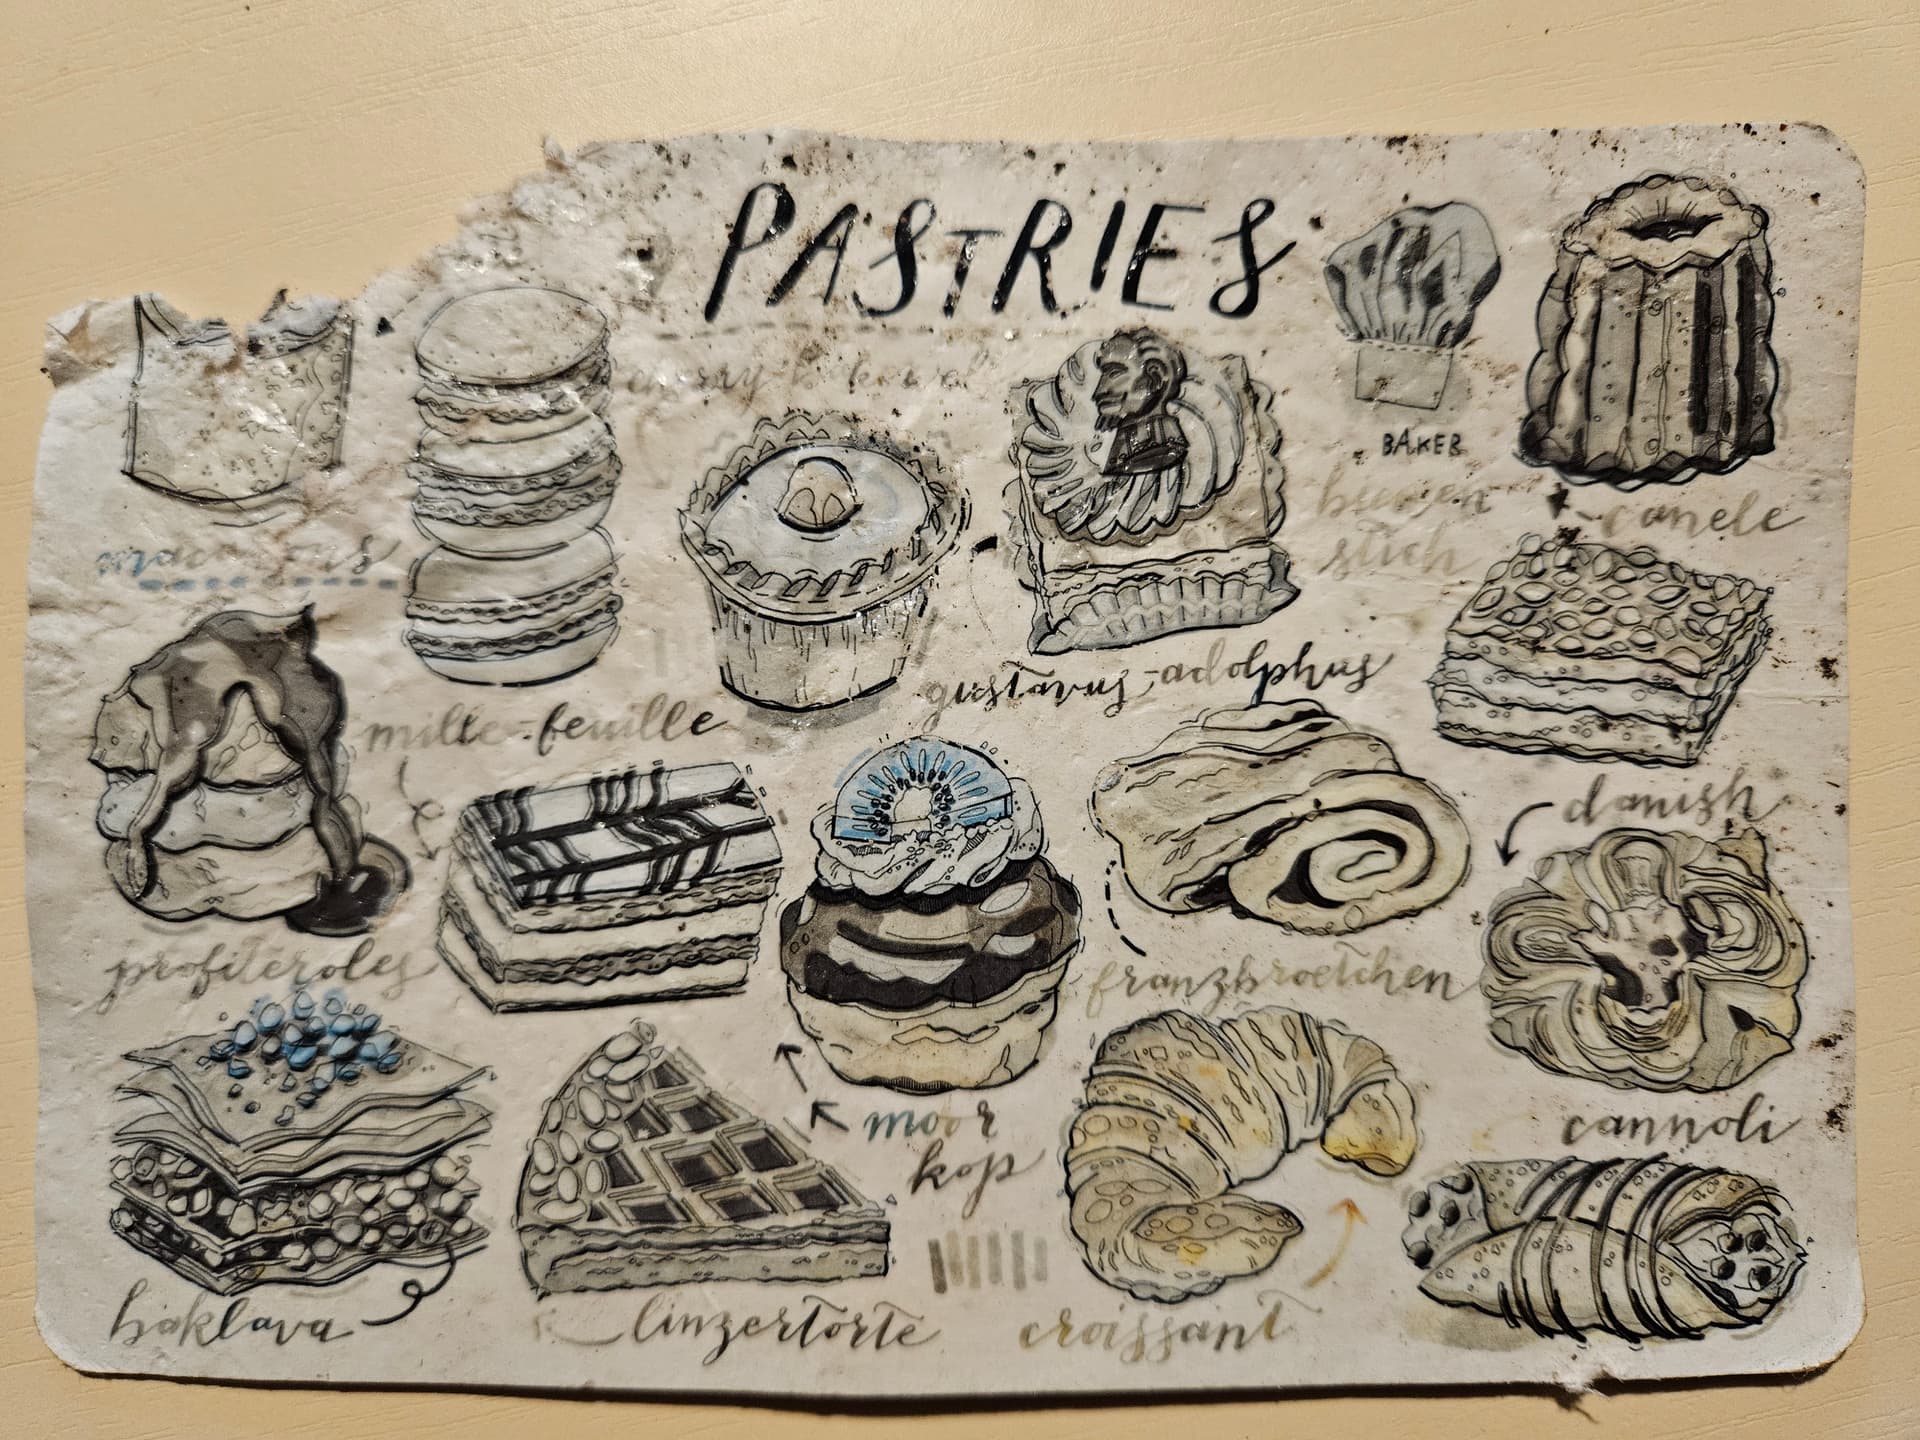 PASTRIES
BAKER
bienen
stich
canele
gustavus-adolphus
mille-feuille
danish
profiteroles
franzbroetchen
moor
kop
cannoli
baklava
linzertorte
croissant